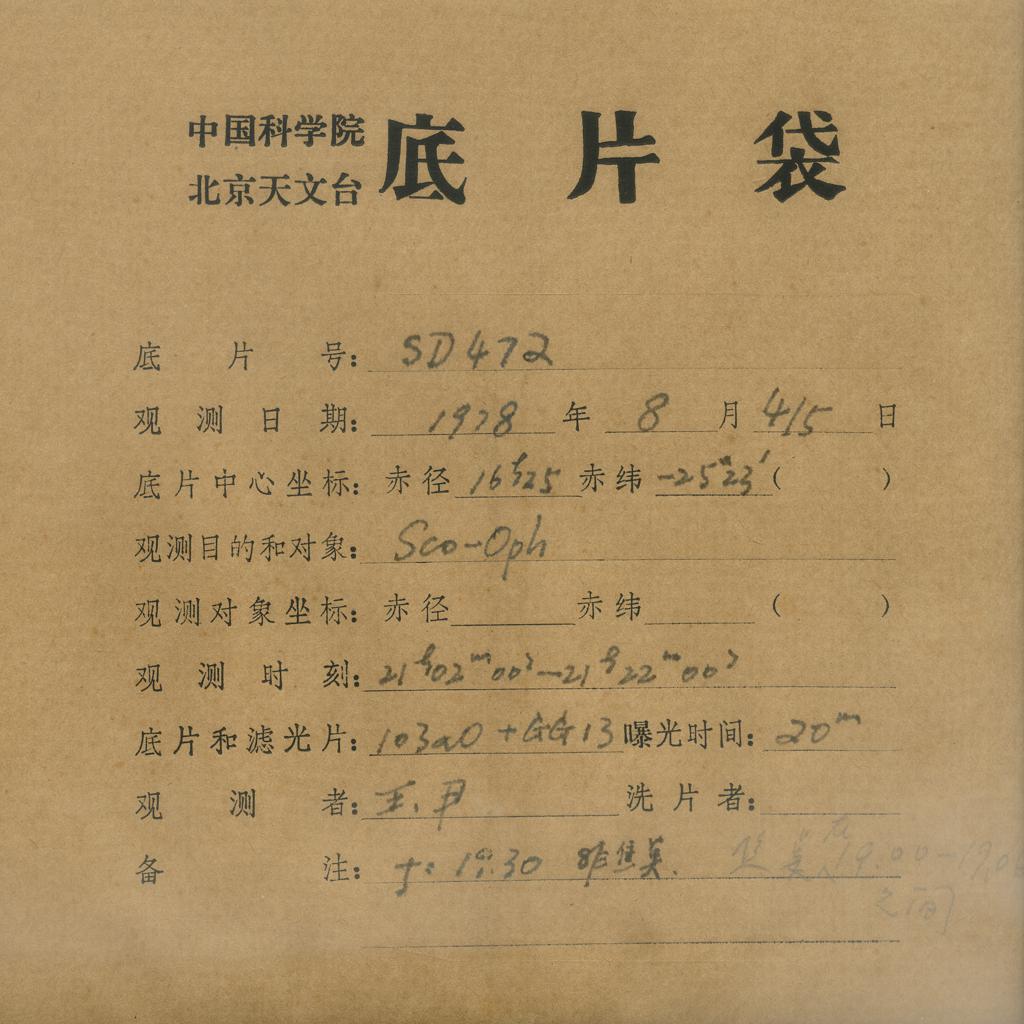 中国科学院
北京天文台
底片袋
底片号: SD472
观测日期: 1978 年 8 月 4/5 日
底片中心坐标: 赤径 16ʰ25 赤纬 -25°23′ ( )
观测目的和对象: Sco-Oph
观测对象坐标: 赤径 赤纬 ( )
观测时刻: 21ʰ02ᵐ00ˢ—21ʰ22ᵐ00ˢ
底片和滤光片: 103aO + GG13 曝光时间: 20ᵐ
观测者: 王. 尹 洗片者:
备注: f: 19.30 19.00-19.0
之间